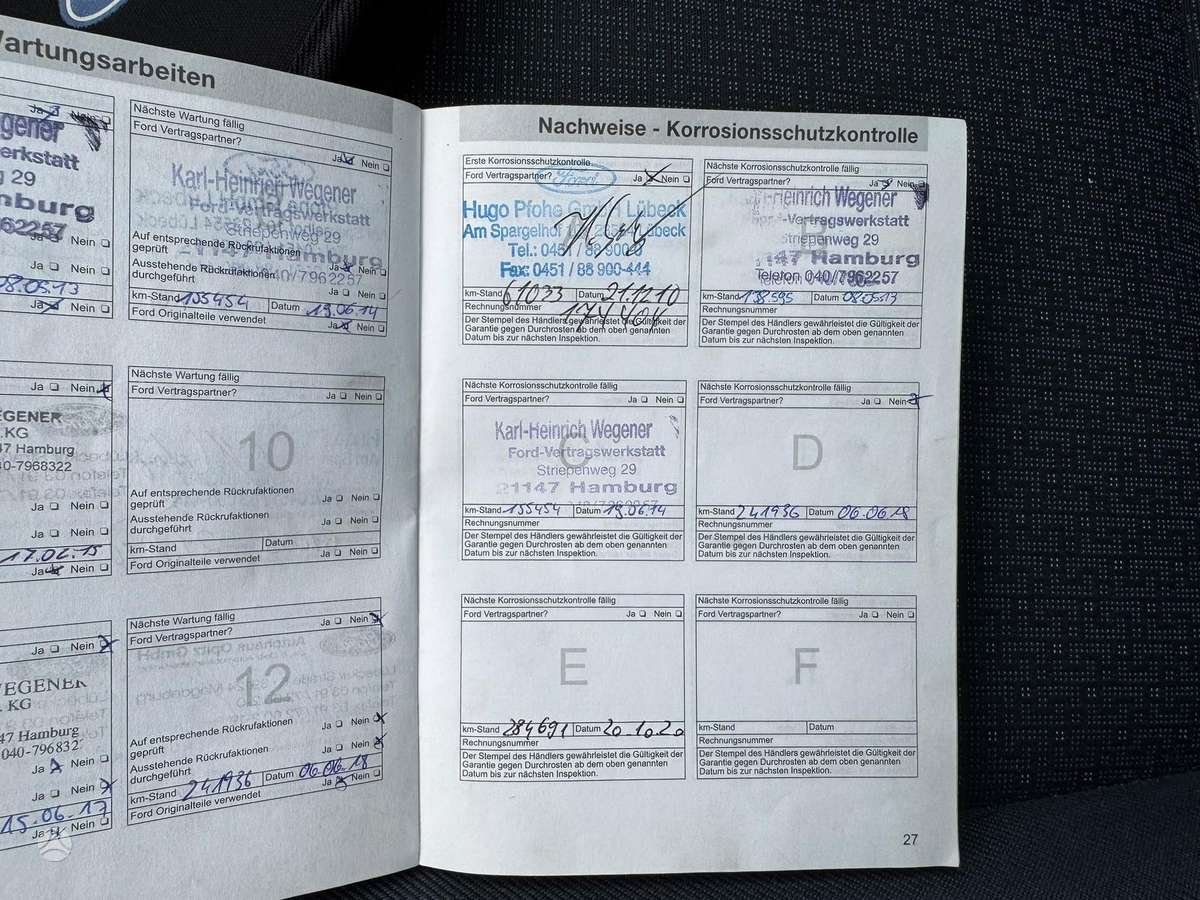 Wartungsarbeiten
Ja Nein
gener
erkstatt
g 29
nburg
62257
Ja Nein
Ja Nein
08.05.13
Ja Nein
Nächste Wartung fällig
Ford Vertragspartner?
Ja Nein
Karl-Heinrich Wegener
Ford-Vertragswerkstatt
Striepenweg 29
21147 Hamburg
040/7962257
Auf entsprechende Rückrufaktionen
geprüft
Ja Nein
Ausstehende Rückrufaktionen
durchgeführt
Ja Nein
km-Stand 155454 Datum 19.06.14
Ford Originalteile verwendet Ja Nein
Ja Nein
EGENER
.KG
47 Hamburg
40-7968322
Ja Nein
Ja Nein
17.02.15
Ja Nein
Nächste Wartung fällig
Ford Vertragspartner?
Ja Nein
10
Auf entsprechende Rückrufaktionen
geprüft
Ja Nein
Ausstehende Rückrufaktionen
durchgeführt
Ja Nein
km-Stand Datum
Ford Originalteile verwendet Ja Nein
Nein
WEGENER
. KG
47 Hamburg
040-796832
Ja Nein
Ja Nein
15.06.17
Ja Nein
Nächste Wartung fällig
Ford Vertragspartner?
Ja Nein
12
Auf entsprechende Rückrufaktionen
geprüft
Ja Nein
Ausstehende Rückrufaktionen
durchgeführt
Ja Nein
km-Stand 241936 Datum 06.06.18
Ford Originalteile verwendet Ja Nein
Nachweise - Korrosionsschutzkontrolle
Erste Korrosionsschutzkontrolle
Ford Vertragspartner? Ja Nein
Hugo Pfohe GmbH Lübeck
Am Spargelhof Lübeck
Tel.: 0451 / 88 900-0
Fax: 0451 / 88 900-444
km-Stand 61033 Datum 21.12.10
Rechnungsnummer 174404
Der Stempel des Händlers gewährleistet die Gültigkeit der
Garantie gegen Durchrosten ab dem oben genannten
Datum bis zur nächsten Inspektion.
Nächste Korrosionsschutzkontrolle fällig
Ford Vertragspartner? Ja Nein
B
-Heinrich Wegener
-Vertragswerkstatt
Striepenweg 29
147 Hamburg
Telefon 040/7962257
km-Stand 138595 Datum 08.05.13
Rechnungsnummer
Der Stempel des Händlers gewährleistet die Gültigkeit der
Garantie gegen Durchrosten ab dem oben genannten
Datum bis zur nächsten Inspektion.
Nächste Korrosionsschutzkontrolle fällig
Ford Vertragspartner? Ja Nein
C
Karl-Heinrich Wegener
Ford-Vertragswerkstatt
Striepenweg 29
21147 Hamburg
km-Stand 155454 Datum 19.06.14
Rechnungsnummer
Der Stempel des Händlers gewährleistet die Gültigkeit der
Garantie gegen Durchrosten ab dem oben genannten
Datum bis zur nächsten Inspektion.
Nächste Korrosionsschutzkontrolle fällig
Ford Vertragspartner? Ja Nein
D
km-Stand 241936 Datum 06.06.18
Rechnungsnummer
Der Stempel des Händlers gewährleistet die Gültigkeit der
Garantie gegen Durchrosten ab dem oben genannten
Datum bis zur nächsten Inspektion.
Nächste Korrosionsschutzkontrolle fällig
Ford Vertragspartner? Ja Nein
E
km-Stand 284691 Datum 20.10.20
Rechnungsnummer
Der Stempel des Händlers gewährleistet die Gültigkeit der
Garantie gegen Durchrosten ab dem oben genannten
Datum bis zur nächsten Inspektion.
Nächste Korrosionsschutzkontrolle fällig
Ford Vertragspartner? Ja Nein
F
km-Stand Datum
Rechnungsnummer
Der Stempel des Händlers gewährleistet die Gültigkeit der
Garantie gegen Durchrosten ab dem oben genannten
Datum bis zur nächsten Inspektion.
27